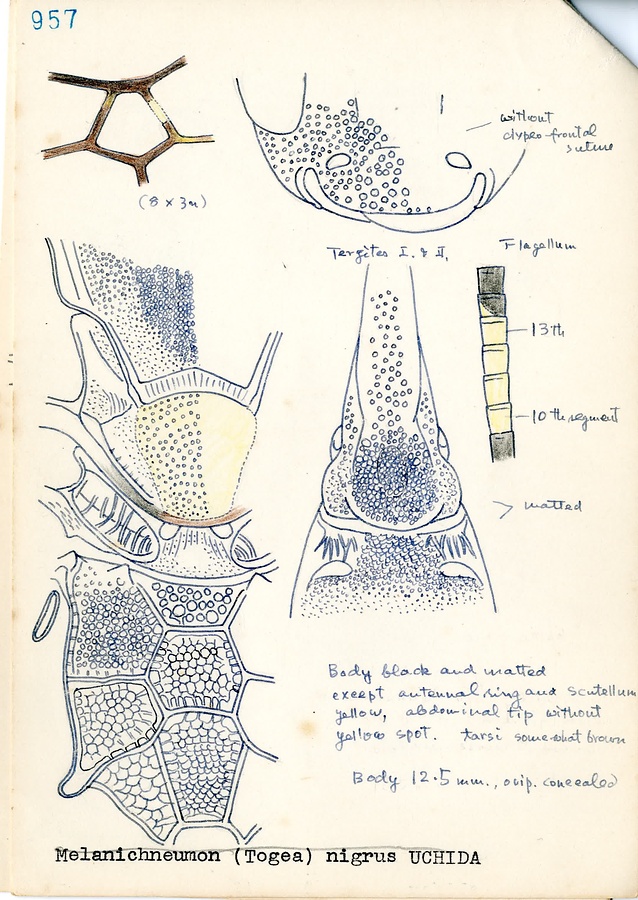 957
without
clypeo-frontal
suture
(8 x 3n)
Tergites I. & II.
Flagellum
13th
10th segment
matted
Body black and matted
except antennal ring and scutellum
yellow, abdominal tip without
yellow spot. tarsi somewhat brown
Body 12.5 mm., ovip. concealed
Melanichneumon (Togea) nigrus UCHIDA